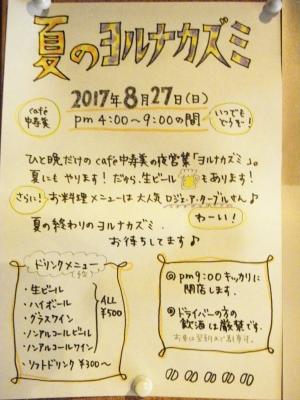 夏のヨルナカズミ
café
中寿美
2017年8月27日(日)
pm 4:00〜9:00の間
いつでも
どうぞ!
ひと晩だけの café中寿美の夜営業「ヨルナカズミ」。
夏にもやります! だから、生ビールもあります!
さらに! お料理メニューは大人気 ロジェ・ア・ターブルさん♪
わーい!
夏の終わりのヨルナカズミ
お待ちしてます♪
ドリンクメニュー
・生ビール
・ハイボール
・グラスワイン
・ノンアルコールビール
・ノンアルコールワイン
ALL
¥500
・ソフトドリンク ¥300〜
@ pm9:00 キッカリに
閉店します.
@ドライバーの方の
飲酒は厳禁です.